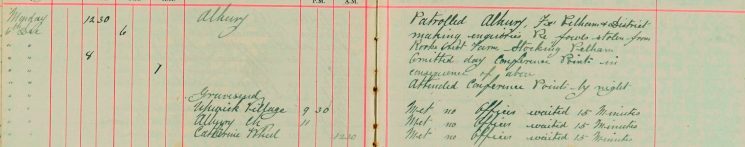 P.M. A.M.
Monday 12 30 Albury Patrolled Albury, Fx Pelham & District
6th Dec 6 making enquiries Re fowls stolen from
" " Rooks Nest Farm - Stocking Pelham
" " 8 Omitted day Conference Points in
" " 7 consequence of above
" " Attended Conference Points - by night.
" " Gravesend
" " Upwick Village 9 30 Met no Officer waited 15 Minutes
" " Albury Ch 11 Met no Officer waited 15 Minutes
" " Catherine Wheel 12 30 Met no Officer waited 15 Minutes